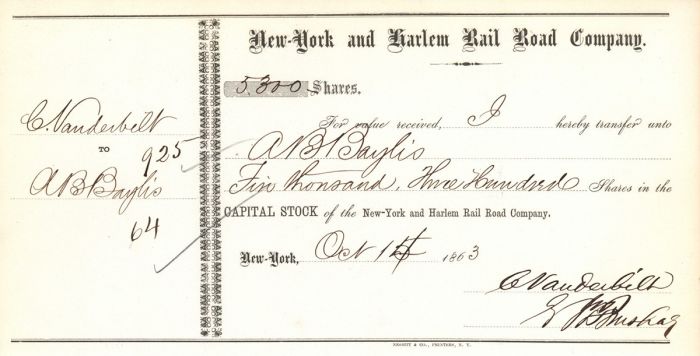 New-York and Harlem Rail Road Company.
5.300 Shares.
For value received, I hereby transfer unto
A B Baylis
Five thousand, Three Hundred Shares in the
CAPITAL STOCK of the New-York and Harlem Rail Road Company.
New-York, Oct 14 1863
C Vanderbilt
C Vanderbilt
TO
925
A B Baylis
64
NESBITT & CO., PRINTERS, N. Y.